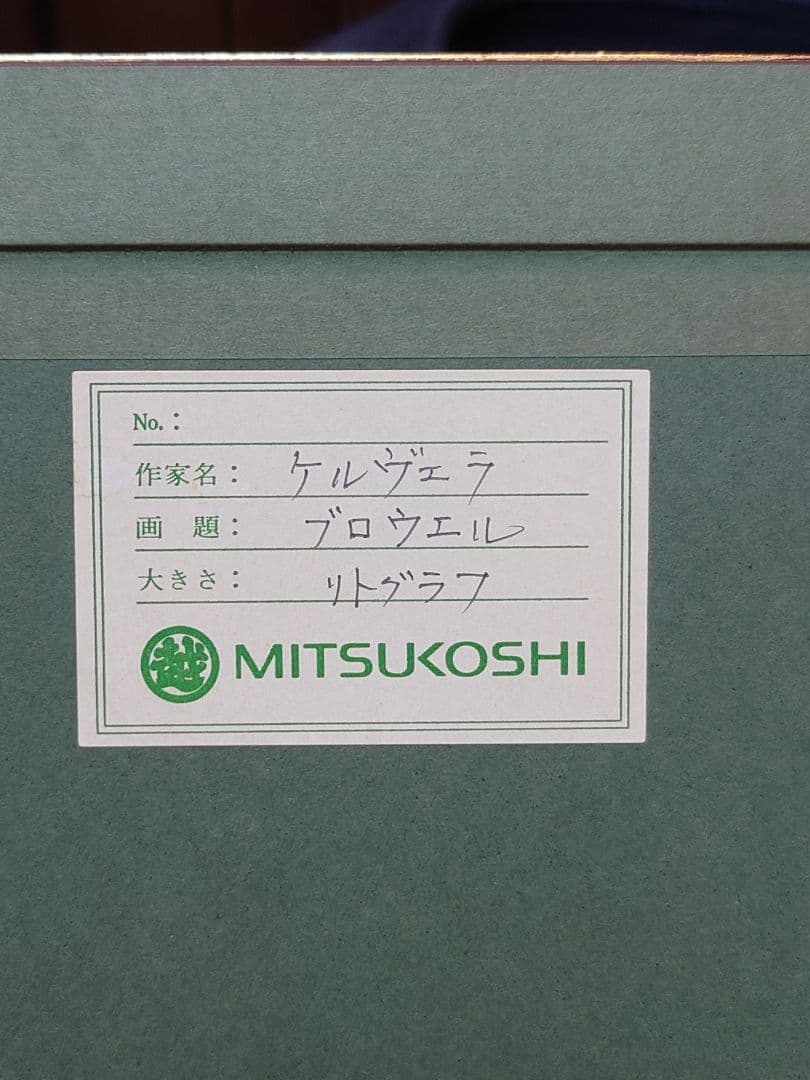 No.：
作家名： ケルヴェラ
画　題： ブロウエル
大きさ： リトグラフ
越 MITSUKOSHI